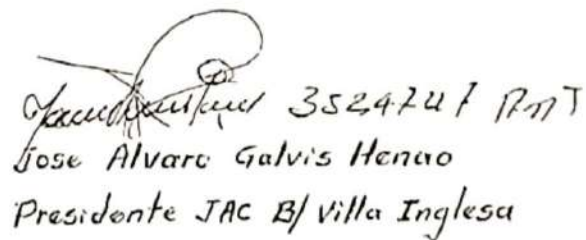 3524747
Jose Alvaro Galvis Henao
Presidente JAC B/ Villa Inglesa